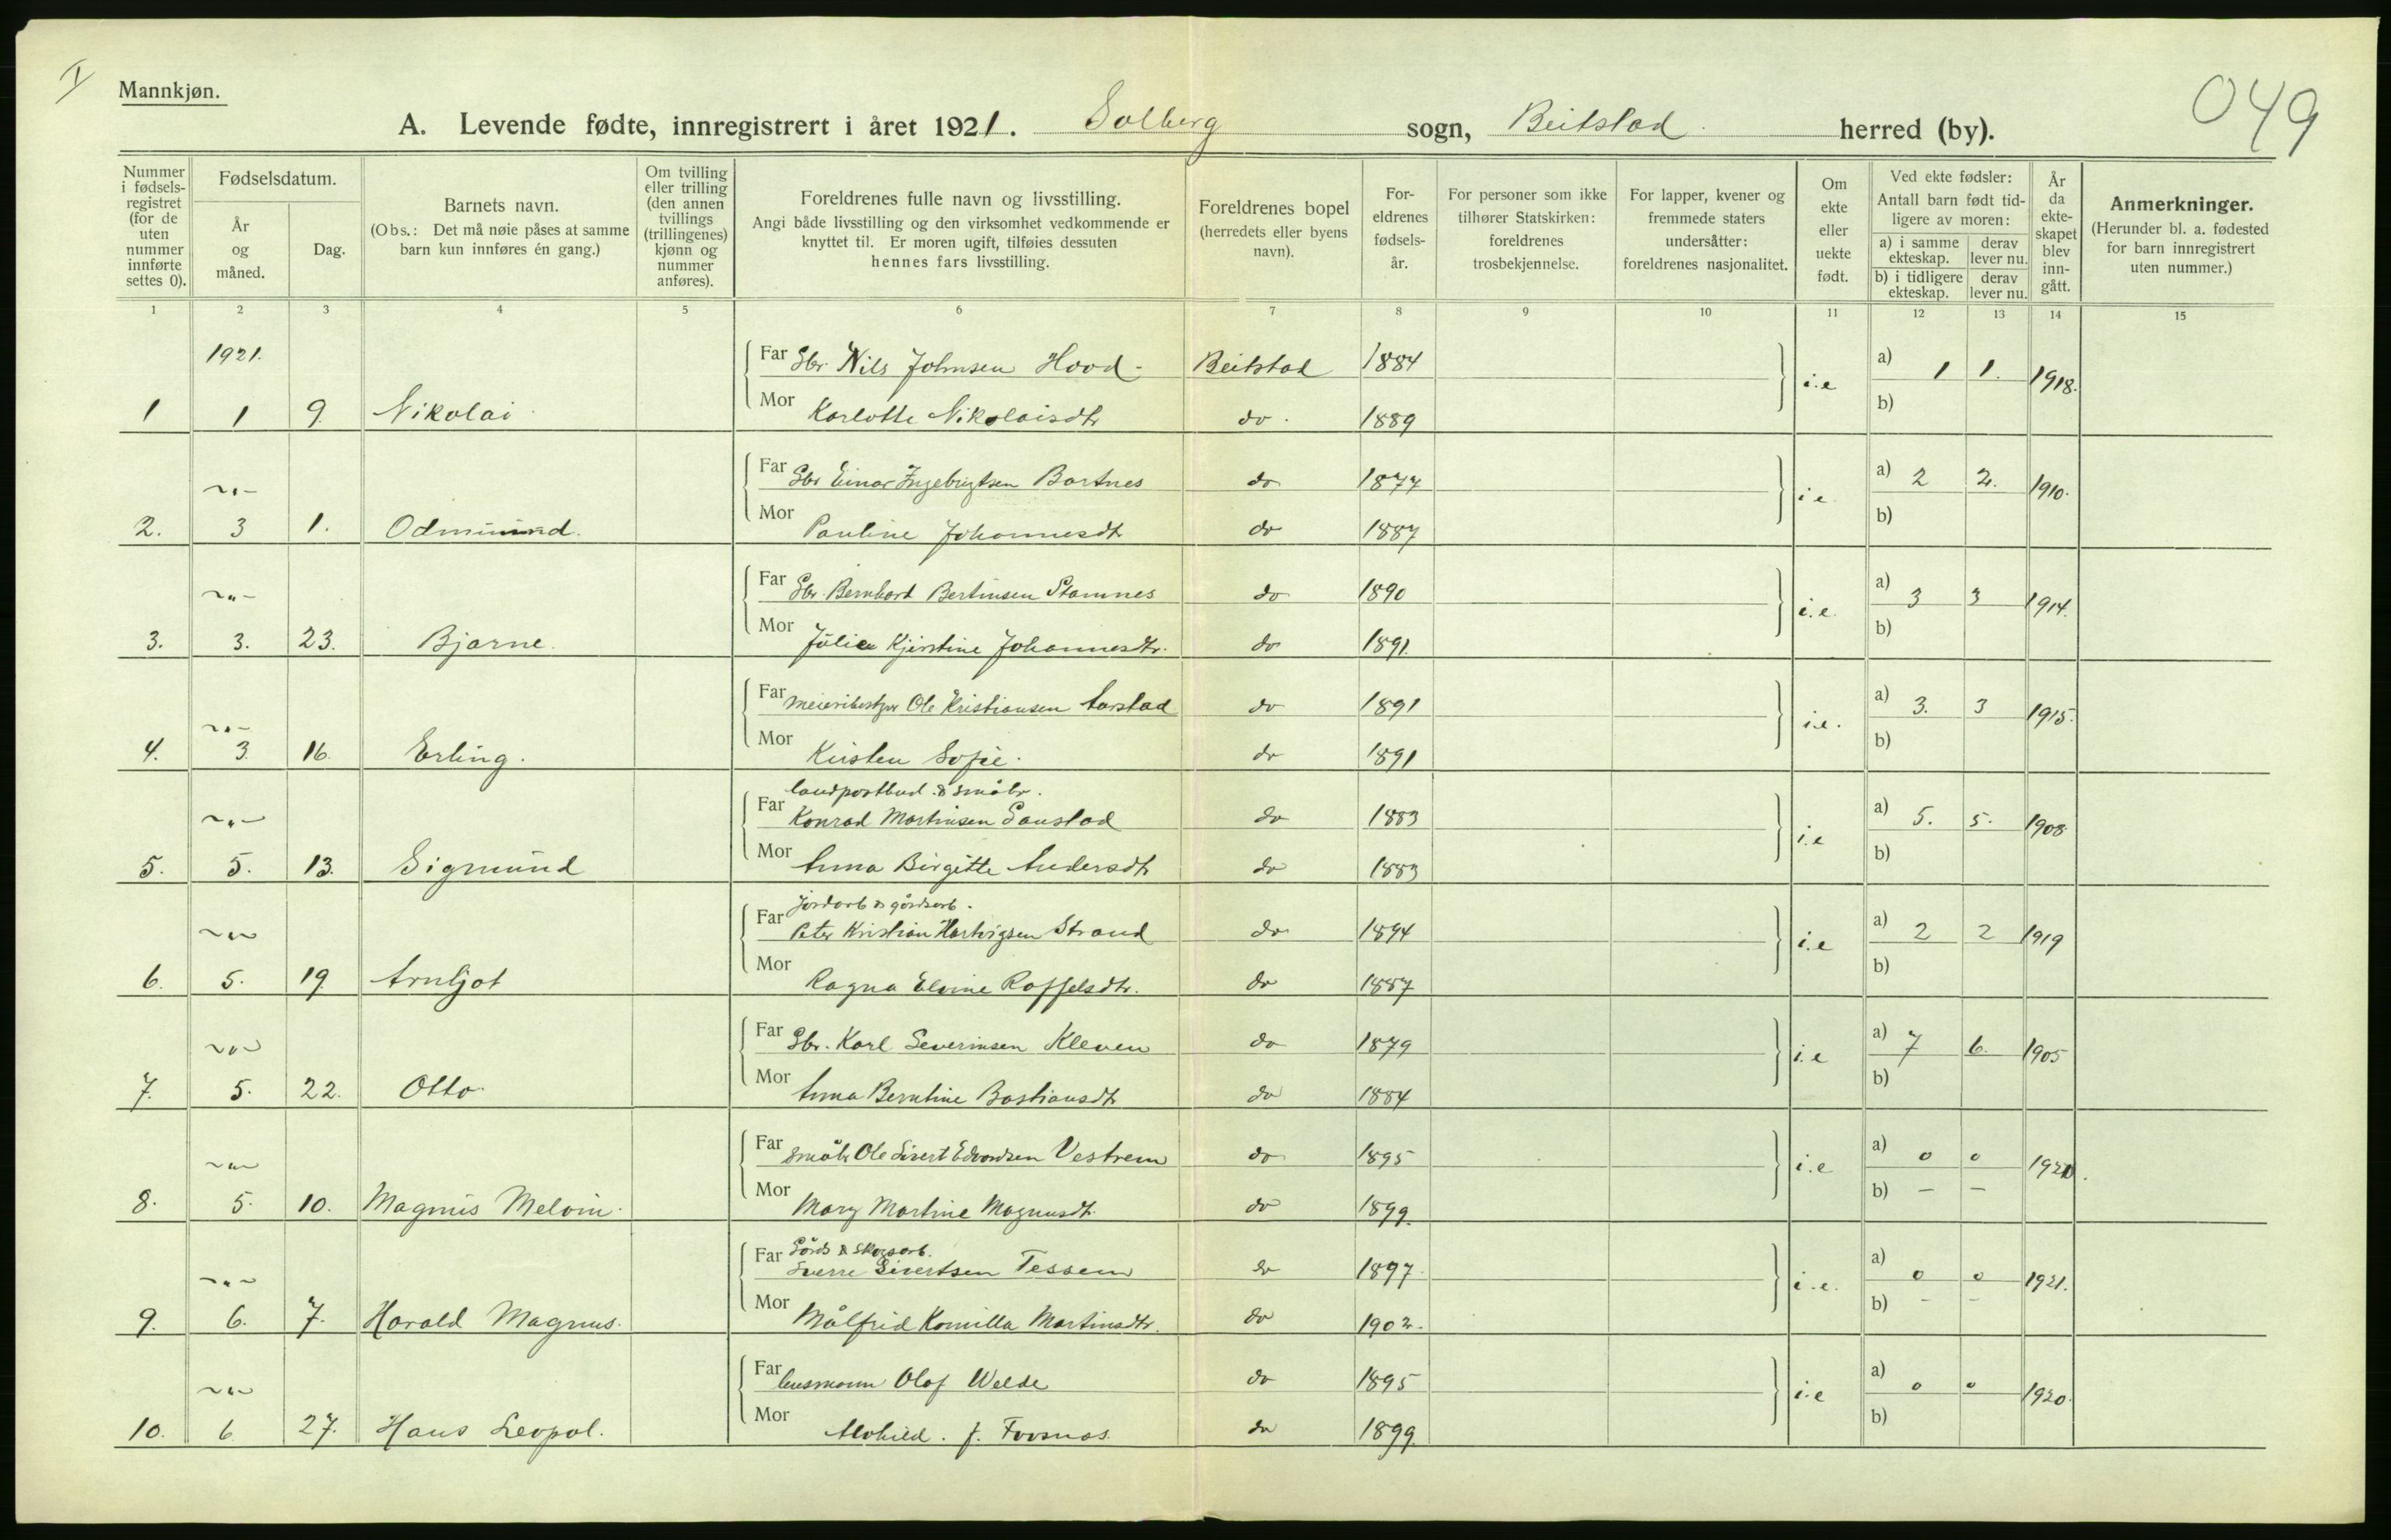 I
Mannkjøn.
049
A. Levende fødte, innregistrert i året 1921. Solberg sogn, Beitstad herred (by).
Nummer i fødsels-registret (for de uten nummer innførte settes 0).
Fødselsdatum.
År og måned.
Dag.
Barnets navn.
(Obs.: Det må nøie påses at samme barn kun innføres én gang.)
Om tvilling eller trilling (den annen tvillings (trillingenes) kjønn og nummer anføres).
Foreldrenes fulle navn og livsstilling.
Angi både livsstilling og den virksomhet vedkommende er knyttet til. Er moren ugift, tilføies dessuten hennes fars livsstilling.
Foreldrenes bopel (herredets eller byens navn).
For-eldrenes fødsels-år.
For personer som ikke tilhører Statskirken: foreldrenes trosbekjennelse.
For lapper, kvener og fremmede staters undersåtter: foreldrenes nasjonalitet.
Om ekte eller uekte født.
Ved ekte fødsler:
Antall barn født tid-ligere av moren:
a) i samme ekteskap. derav lever nu.
b) i tidligere ekteskap. derav lever nu.
År da ekte-skapet blev inn-gått.
Anmerkninger.
(Herunder bl. a. fødested for barn innregistrert uten nummer.)
1 2 3 4 5 6 7 8 9 10 11 12 13 14 15
1921. Far Gbr. Nils Johnsen Hood - Beitstad 1884 i.e a) 1 1. 1918.
1 1 9. Nikolai Mor Karlotte Nikolaisdtr do. 1889 b)
~"- Far Gbr Einar Ingebrigtsen Bartnes do 1877 i.e. a) 2 2. 1910.
2. 3 1. Odmund. Mor Pauline Johannesdtr do 1887 b)
~"- Far Gbr. Bernhard Bertinsen Stamnes do 1890 i.e. a) 3 3 1914.
3. 3. 23. Bjarne. Mor Julie Kjerstine Johannesdtr. do 1891. b)
~"- Far Meieribestyr Ole Kristiansen Aarstad do 1891 i.e. a) 3. 3 1915.
4. 3. 16. Erling. Mor Kristen Sofie. do 1891 b)
landpostbud & småbr.
~"- Far Konrad Martinsen Saustad do 1883 i.e a) 5. 5. 1908
5. 5. 13. Sigmund Mor Anna Birgitte Andersdtr do 1883 b)
Jordarb & gårdsarb.
~"~ Far Peter Kristian Hartvigsen Strand do 1894 i.e a) 2 2 1919
6. 5. 19 Arnljot Mor Ragna Elvine Roffelsdtr. do 1887 b)
~"~ Far Gbr. Karl Severinsen Kleven do 1879 i.e a) 7 6. 1905
7. 5. 22. Otto. Mor Anna Berntine Bastiansdtr do 1884 b)
~"~ Far småbr Ole Sivert Edvardsen Vestrem do 1895 i.e a) 0 0 1920.
8. 5. 10. Magnus Melvin. Mor Mary Martine Magnusdtr. do 1899. b) – –
Gårds & skogsarb.
~"~ Far Sverre Sivertsen Tessem do 1897 i.e. a) 0 0 1921.
9. 6. 7. Harald Magnus. Mor Målfrid Kamilla Martinsdtr. do 1902. b) – –
~"~ Far lensmann Olaf Welde do 1895 i.e a) 0 0 1920.
10. 6 27. Hans Leopol. Mor Alvhild. f. Forsnas. do 1899. b)